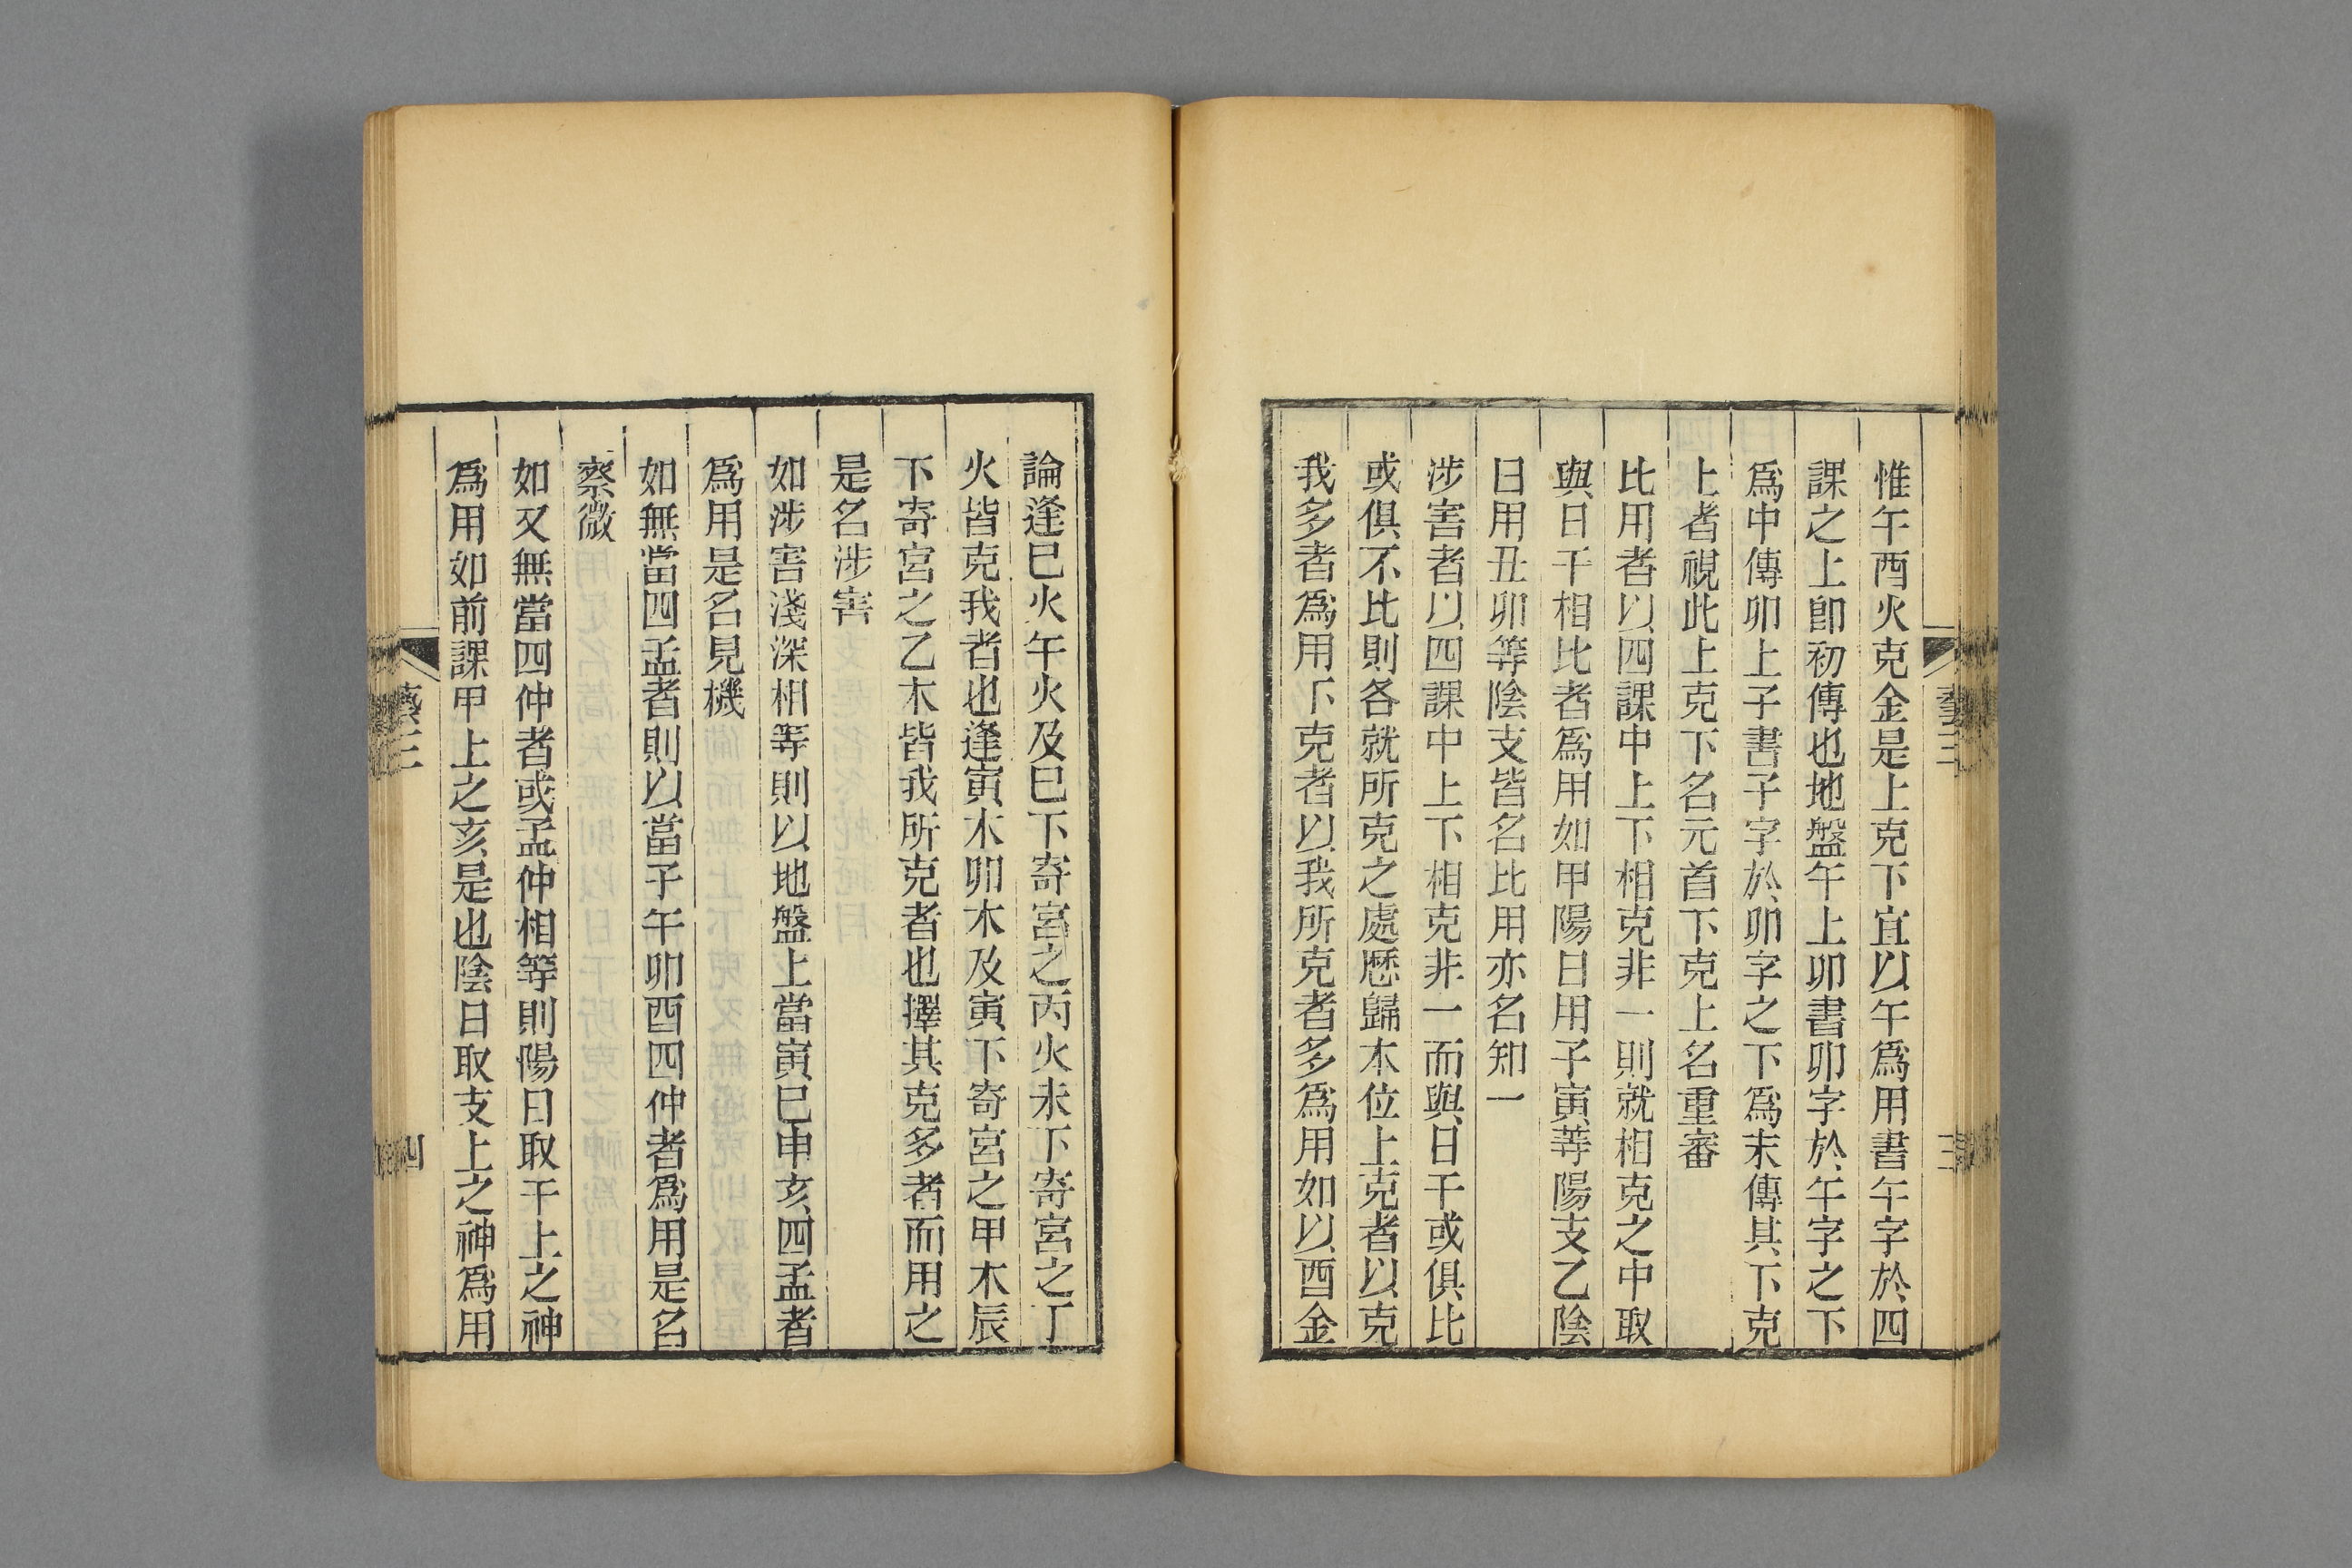 惟午酉火克金是上克下宜以午爲用書午字於四
課之上卽初傳也地盤午上卯書卯字於午字之下
爲中傳卯上子書子字於卯字之下爲末傳其下克
上者視此上克下名元首下克上名重審
比用者以四課中上下相克非一則就相克之中取
與日干相比者爲用如甲陽日用子寅等陽支乙陰
日用丑卯等陰支皆名比用亦名知一
涉害者以四課中上下相克非一而與日干或俱比
或俱不比則各就所克之處歷歸本位上克者以克
我多者爲用下克者以我所克者多爲用如以酉金
論逢巳火午火及巳下寄宮之丙火未下寄宮之丁
火皆克我者也逢寅木卯木及寅下寄宮之甲木辰
下寄宮之乙木皆我所克者也擇其克多者而用之
是名涉害
如涉害淺深相等則以地盤上當寅巳申亥四孟者
爲用是名見機
如無當四孟者則以當子午卯酉四仲者爲用是名
察微
如又無當四仲者或孟仲相等則陽日取干上之神
爲用如前課甲上之亥是也陰日取支上之神爲用
藝三
三
藝三
四